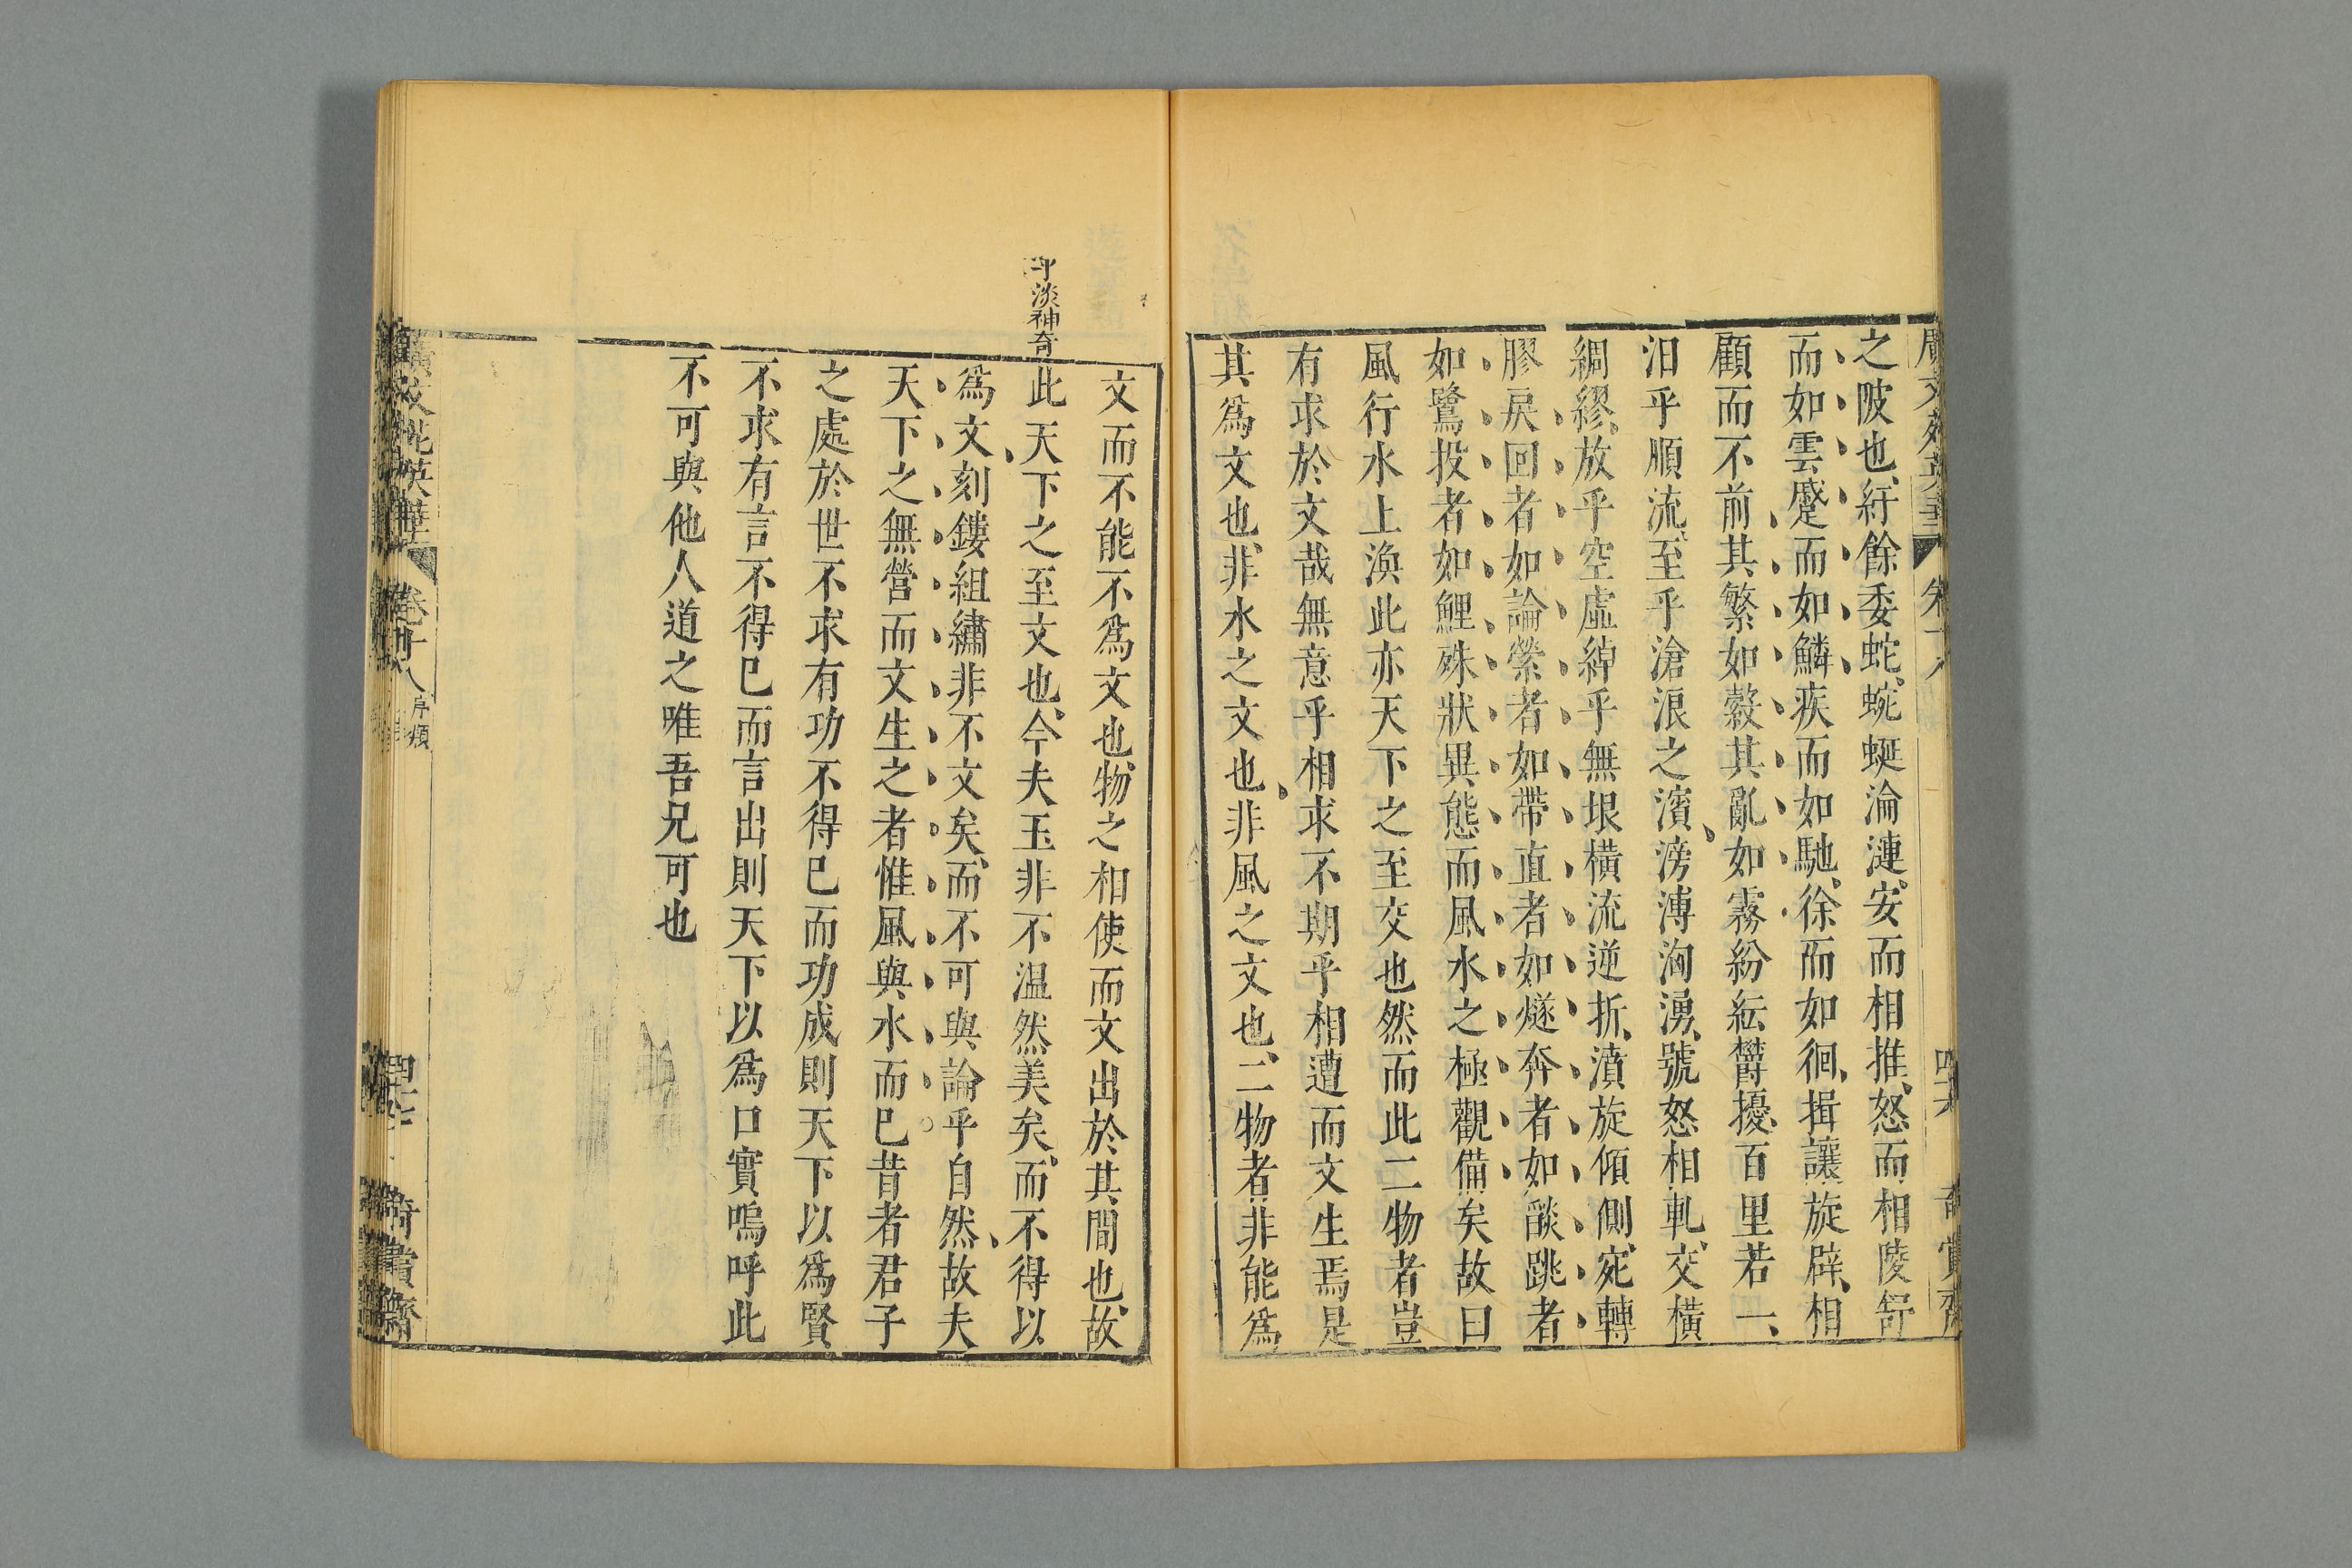 之陂也紆餘委蛇蜿蜒淪漣安而相推怒而相陵舒
而如雲蹙而如鱗疾而如馳徐而如徊揖讓旋辟相
顧而不前其繁如縠其亂如霧紛紜欝擾百里若一
汨乎順流至乎滄浪之濱滂溥洶湧號怒相軋交橫
綢繆放乎空虛綽乎無垠橫流逆折濆旋傾側宛轉
膠戾回者如論縈者如帶直者如燧奔者如燄跳者
如鷺投者如鯉殊狀異態而風水之極觀備矣故曰
風行水上渙此亦天下之至文也然而此二物者豈
有求於文哉無意乎相求不期乎相遭而文生焉是
其爲文也非水之文也非風之文也二物者非能爲
文而不能不爲文也物之相使而文出於其間也故
淡神奇
此天下之至文也今夫玉非不温然美矣而不得以
爲文刻鏤組繡非不文矣而不可與論乎自然故夫
天下之無營而文生之者惟風與水而已昔者君子
之處於世不求有功不得已而功成則天下以爲賢
不求有言不得已而言出則天下以爲口實嗚呼此
不可與他人道之唯吾兄可也
卷十八 序類
四十七
奇賞齋